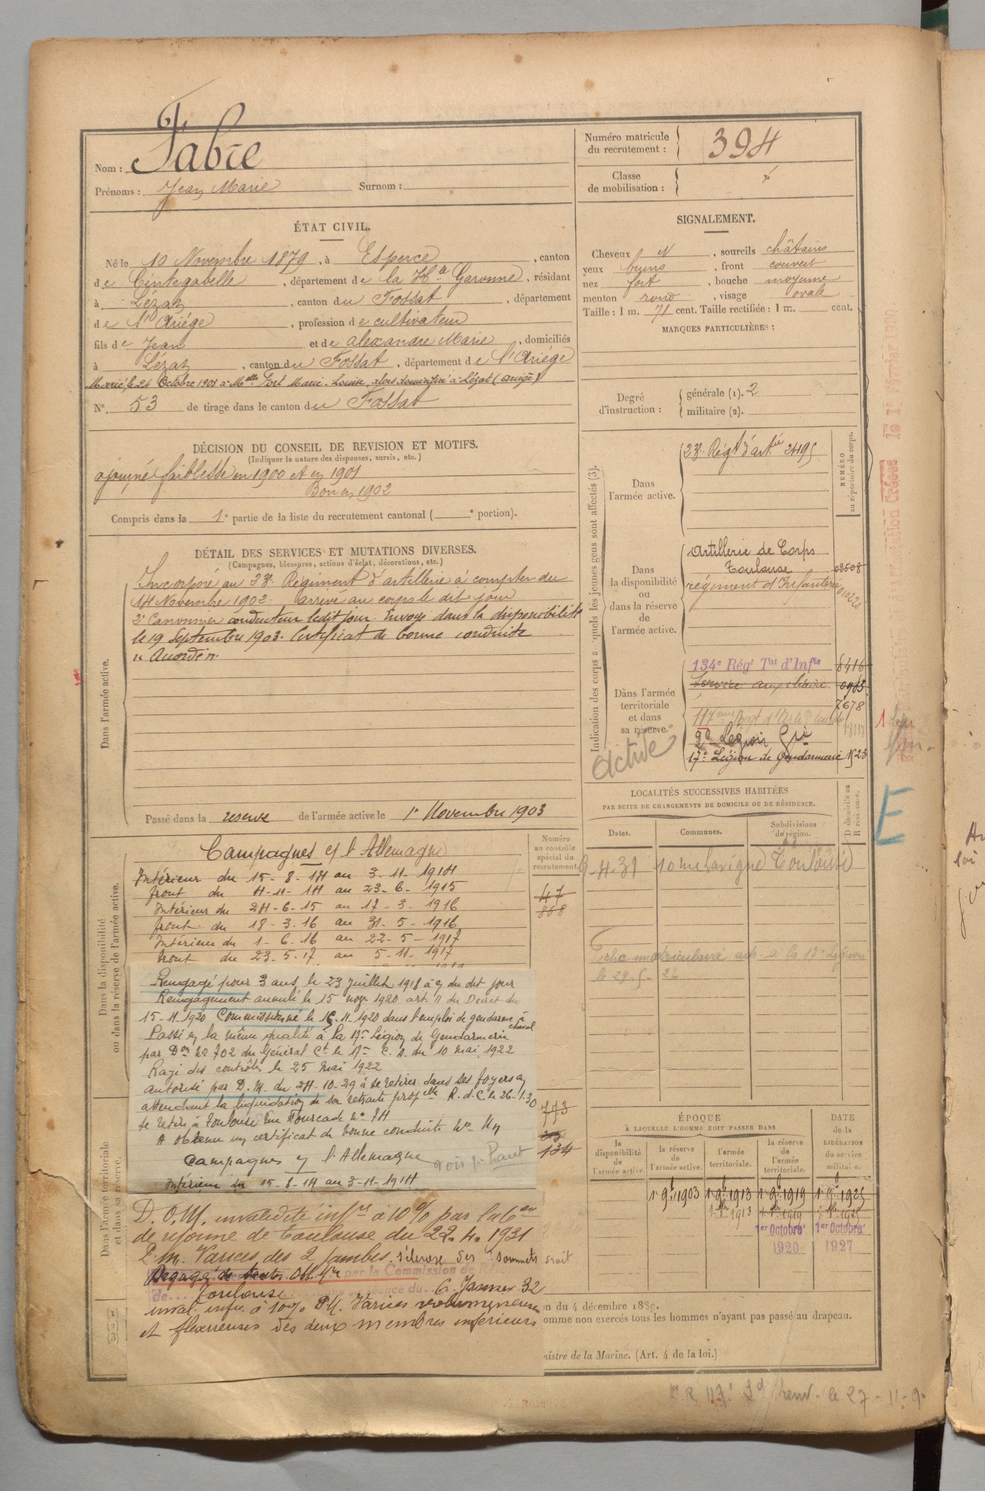 Nom : Fabre
Prénoms : Jean Marie Surnom :
Numéro matricule
du recrutement : 394
Classe
de mobilisation :
ÉTAT CIVIL.
Né le 10 Novembre 1879, à Esperce, canton
de Cintegabelle, département de la Hte Garonne, résidant
à Lézat, canton du Fossat, département
de l'Ariége, profession de cultivateur
fils de Jean et de alexandre Marie, domiciliés
à Lézat, canton du Fossat, département de l'Ariége
Marié le 26 Octobre 1901 à Melle Fort Marie-Louise, alors domiciliée à Lézat (ariège)
N° 53 de tirage dans le canton du Fossat
SIGNALEMENT.
Cheveux N, sourcils châtains
yeux bruns, front couvert
nez fort, bouche moyenne
menton rond, visage ovale
Taille : 1 m. 71 cent. Taille rectifiée : 1 m. cent.
MARQUES PARTICULIÈRES :
Degré
d'instruction :
générale (1). 2
militaire (2).
DÉCISION DU CONSEIL DE REVISION ET MOTIFS.
(Indiquer la nature des dispenses, sursis, etc.)
ajourné faiblesse en 1900 et en 1901
Bon en 1902
Compris dans la 1e partie de la liste du recrutement cantonal ( e portion).
DÉTAIL DES SERVICES ET MUTATIONS DIVERSES.
(Campagnes, blessures, actions d'éclat, décorations, etc.)
Dans l'armée active.
Incorporé au 23e Régiment d'artillerie à compter du
14 Novembre 1902 arrivé au corps le dit jour
2e Canonnier conducteur ledit jour. Envoyé dans la disponibilité
le 19 Septembre 1903. Certificat de bonne conduite
" Accordé "
Passé dans la reserve de l'armée active le 1er Novembre 1903
Indication des corps auxquels les jeunes gens sont affectés (3).
NUMÉRO
au répertoire du corps.
Dans
l'armée active.
23e Régt d'artie 2495
Dans
la disponibilité
ou
dans la réserve
de
l'armée active.
Artillerie de Corps
Toulouse
régiment d'Infanterie
Dans l'armée
territoriale
et dans
sa réserve.
134e Régt Tal d'Infie 6416
Service auxiliaire 0963
7678
17e Légion de Gendarmerie 1523
active
E
LOCALITÉS SUCCESSIVES HABITÉES
PAR SUITE DE CHANGEMENTS DE DOMICILE OU DE RÉSIDENCE.
Dates.
Communes.
Subdivisions
de région.
D domicile ou
R résidence.
9-4-31 Toulouse
Fiche matriculaire à la 17e Légion
Numéro
au contrôle
spécial du
recrutement.
47
868
773
134
Dans la disponibilité
ou dans la réserve de l'armée active.
Campagnes c/ l'Allemagne
Intérieur du 15-8-14 au 3-11-1914
front du 4-11-14 au 23-6-1915
Intérieur du 24-6-15 au 17-3-1916
front du 18-3-16 au 31-5-1916
Intérieur du 1-6-16 au 22-5-1917
front du 23-5-17 au 5-11-1917
Rengagé pour 3 ans, le 23 juillet 1918 à c/ du dit jour
Rengagement annulé le 15 nov 1920 art. 11 du Décret du
15-11-1920 Commissionné le 16-11-1920 dans l'emploi de gendarme à cheval
Passé en la même qualité à la 17e Légion de Gendarmerie
par Don No 702 du Général Ct le 17e C.A. du 10 mai 1922
Rayé des contrôles le 25 Mai 1922
autorisé par D.M. du 24-10-29 à se retirer dans ses foyers en
attendant la liquidation de sa retraite propelle R. d. C. le 26-1-30
se retire à Toulouse
A obtenu un certificat de bonne conduite
Campagnes c/ l'Allemagne
Intérieur du 15-8-14 au 3-11-1914
Dans l'armée territoriale
et dans sa réserve.
D.O.M. invalidité infre à 10% par la Con
de réforme de Toulouse du 22.4.1931
P.M. Varices des 2 jambes. sclérose des sommets droit
Toulouse 6 Janvier 32
inval. infre à 10% P.M. Varices volumineuses
et flexueuses des deux membres inférieurs
ÉPOQUE
À LAQUELLE L'HOMME DOIT PASSER DANS
la
disponibilité
de
l'armée active.
la réserve
de
l'armée active.
l'armée
territoriale.
la réserve
de l'armée
territoriale.
DATE
de la
LIBÉRATION
du service
militaire.
1er 9bre 1903
1er 9bre 1913
1er 9bre 1919
1925
1er Octobre
1920
1er Octobre
1927
on du 4 décembre 1889.
omme non exercés tous les hommes n'ayant pas passé au drapeau.
inistre de la Marine. (Art. 4 de la loi.)